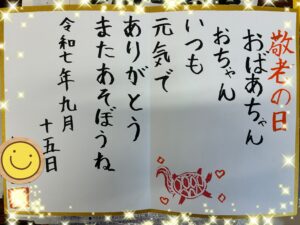 敬老の日
おばあちゃん
おちゃん
いつも
元気で
ありがとう
またあそぼうね
令和七年九月
十五日